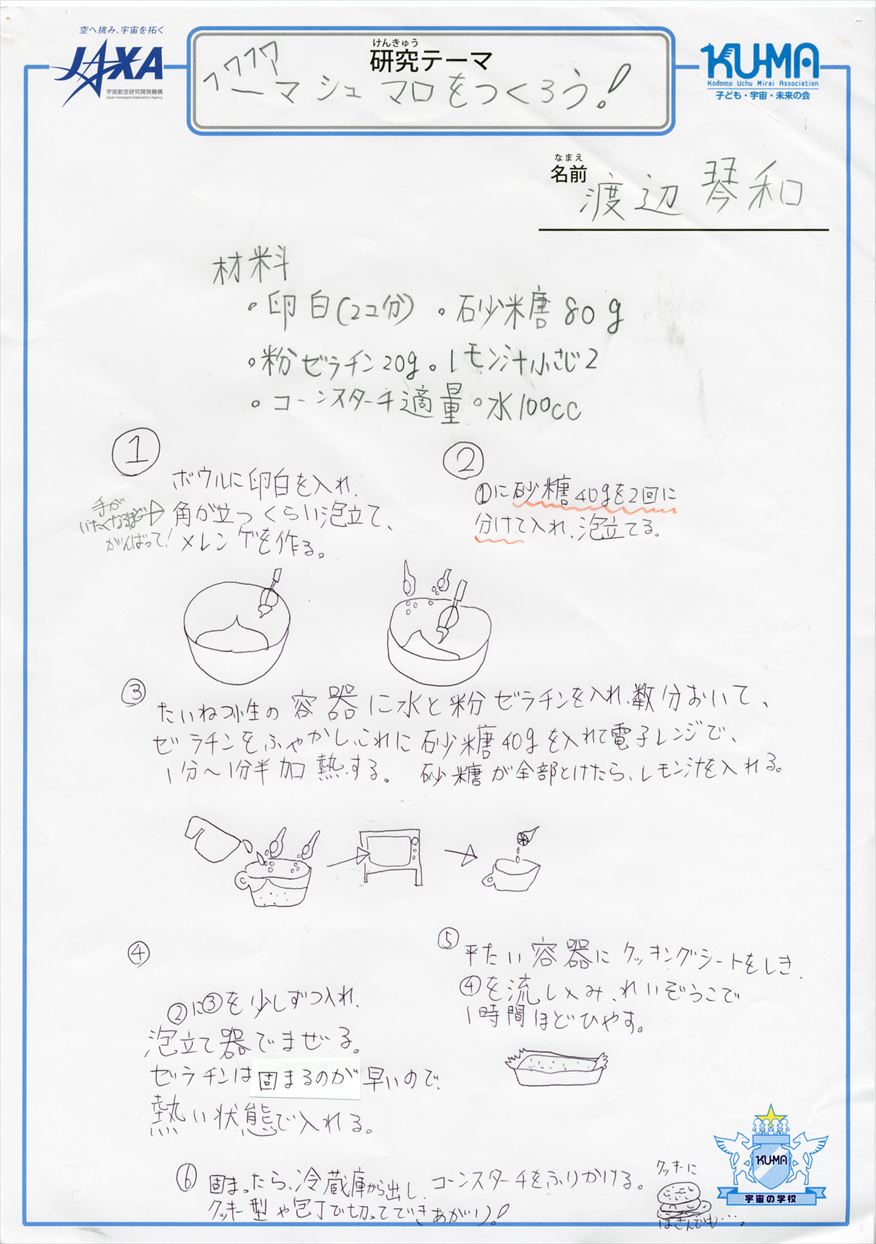 空へ挑み、宇宙を拓く
JAXA
宇宙航空研究開発機構
Japan Aerospace Exploration Agency
けんきゅう
研究テーマ
フワフワ
マシュマロをつくろう!
KU-MA
Kodomo Uchu Mirai Association
子ども・宇宙・未来の会
なまえ
名前 渡辺 琴和
材料
・卵白(2コ分) ・砂糖80g
・粉ゼラチン20g ・レモン汁小さじ2
・コーンスターチ適量 ・水100cc
①
ボウルに卵白を入れ、
角が立つくらい泡立て、
メレンゲを作る。
手が
いたくなるほど
がんばって!
②
①に砂糖40gを2回に
分けて入れ、泡立てる。
③
たいねつ性の容器に水と粉ゼラチンを入れ、数分おいて、
ゼラチンをふやかし、これに砂糖40gを入れて電子レンジで、
1分〜1分半加熱する。 砂糖が全部とけたら、レモン汁を入れる。
④
②に③を少しずつ入れ、
泡立て器でまぜる。
ゼラチンは固まるのが早いので、
熱い状態で入れる。
⑤
平たい容器にクッキングシートをしき、
④を流し込み、れいぞうこで
1時間ほどひやす。
⑥ 固まったら、冷蔵庫から出し、コーンスターチをふりかける。
クッキー型や包丁で切ってできあがり!
クッキーに
はさんでも…。
KU-MA
宇宙の学校